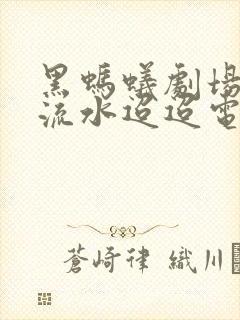 黑螞蟻劇場
流水迢迢電
蒼崎律 織川